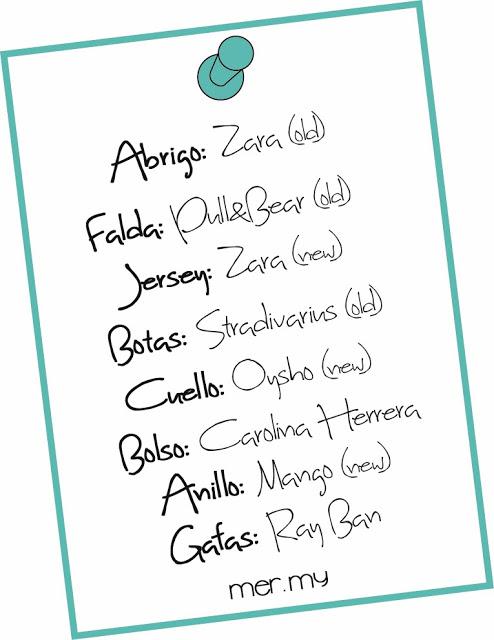 Abrigo: Zara (old)
Falda: Pull&Bear (old)
Jersey: Zara (new)
Botas: Stradivarius (old)
Cuello: Oysho (new)
Bolso: Carolina Herrera
Anillo: Mango (new)
Gafas: Ray Ban
mer.my